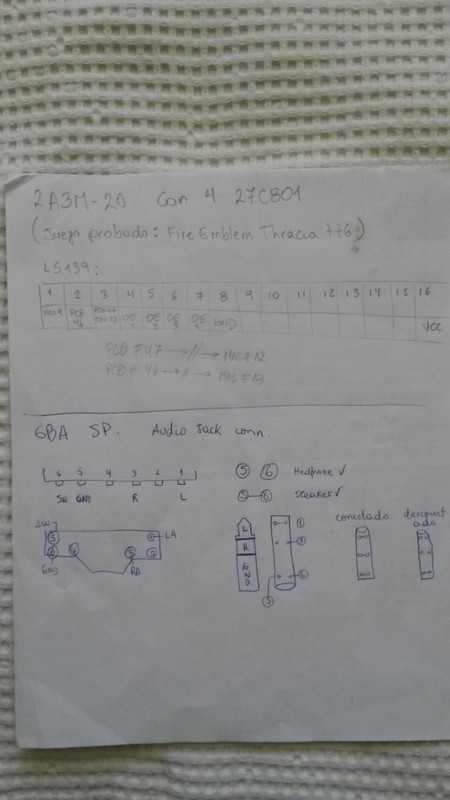 2A3M-20 Con 4 27C801
(Juego probado: Fire Emblem Thracia 776)
LS139:
1 2 3 4 5 6 7 8 9 10 11 12 13 14 15 16
PCB 46 OE 1 OE 2 OE OE GND VCC
PCB #47 → // → MAD#12
PCB # 46 → // → MAD #13
GBA SP. Audio Jack conn.
6 5 4 3 2 1
SW GND R L
5 6 Hedphone ✓
5 6 Speaker ✓
SW
5 1 LA
6 2
GND RA
L
R
GND
1
6
5
conectado
desconect
ado